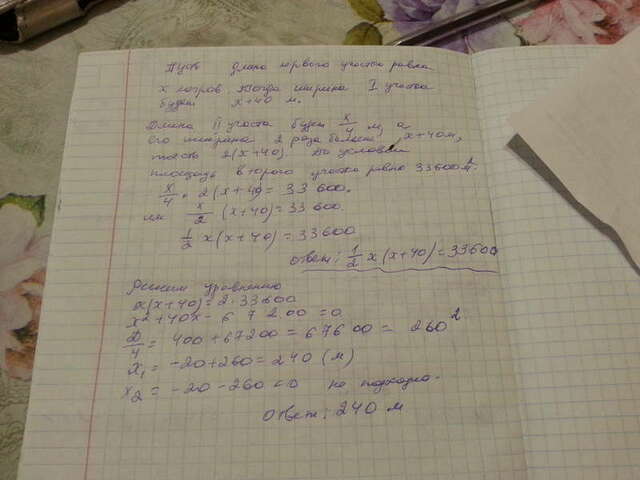 Пусть длина первого участка равна
x метров. Тогда ширина I участка
будет x+40 м.
Длина II участка будет x/4 м, а
его ширина 2 раза больше x+40м,
то есть 2(x+40). По условии
площадь второго участка равно 33600м².
x/4 · 2(x+40) = 33 600.
или x/2 (x+40)=33 600.
1/2 x(x+40) = 33600
ответ: 1/2 x(x+40)=33600
Решим уравнению
x(x+40)=2·33600
x²+40x-67200=0
D/4 = 400+67200=67600=260²
x₁ = -20+260=240 (м)
x₂ = -20-260<0 не подходит.
Ответ: 240 м